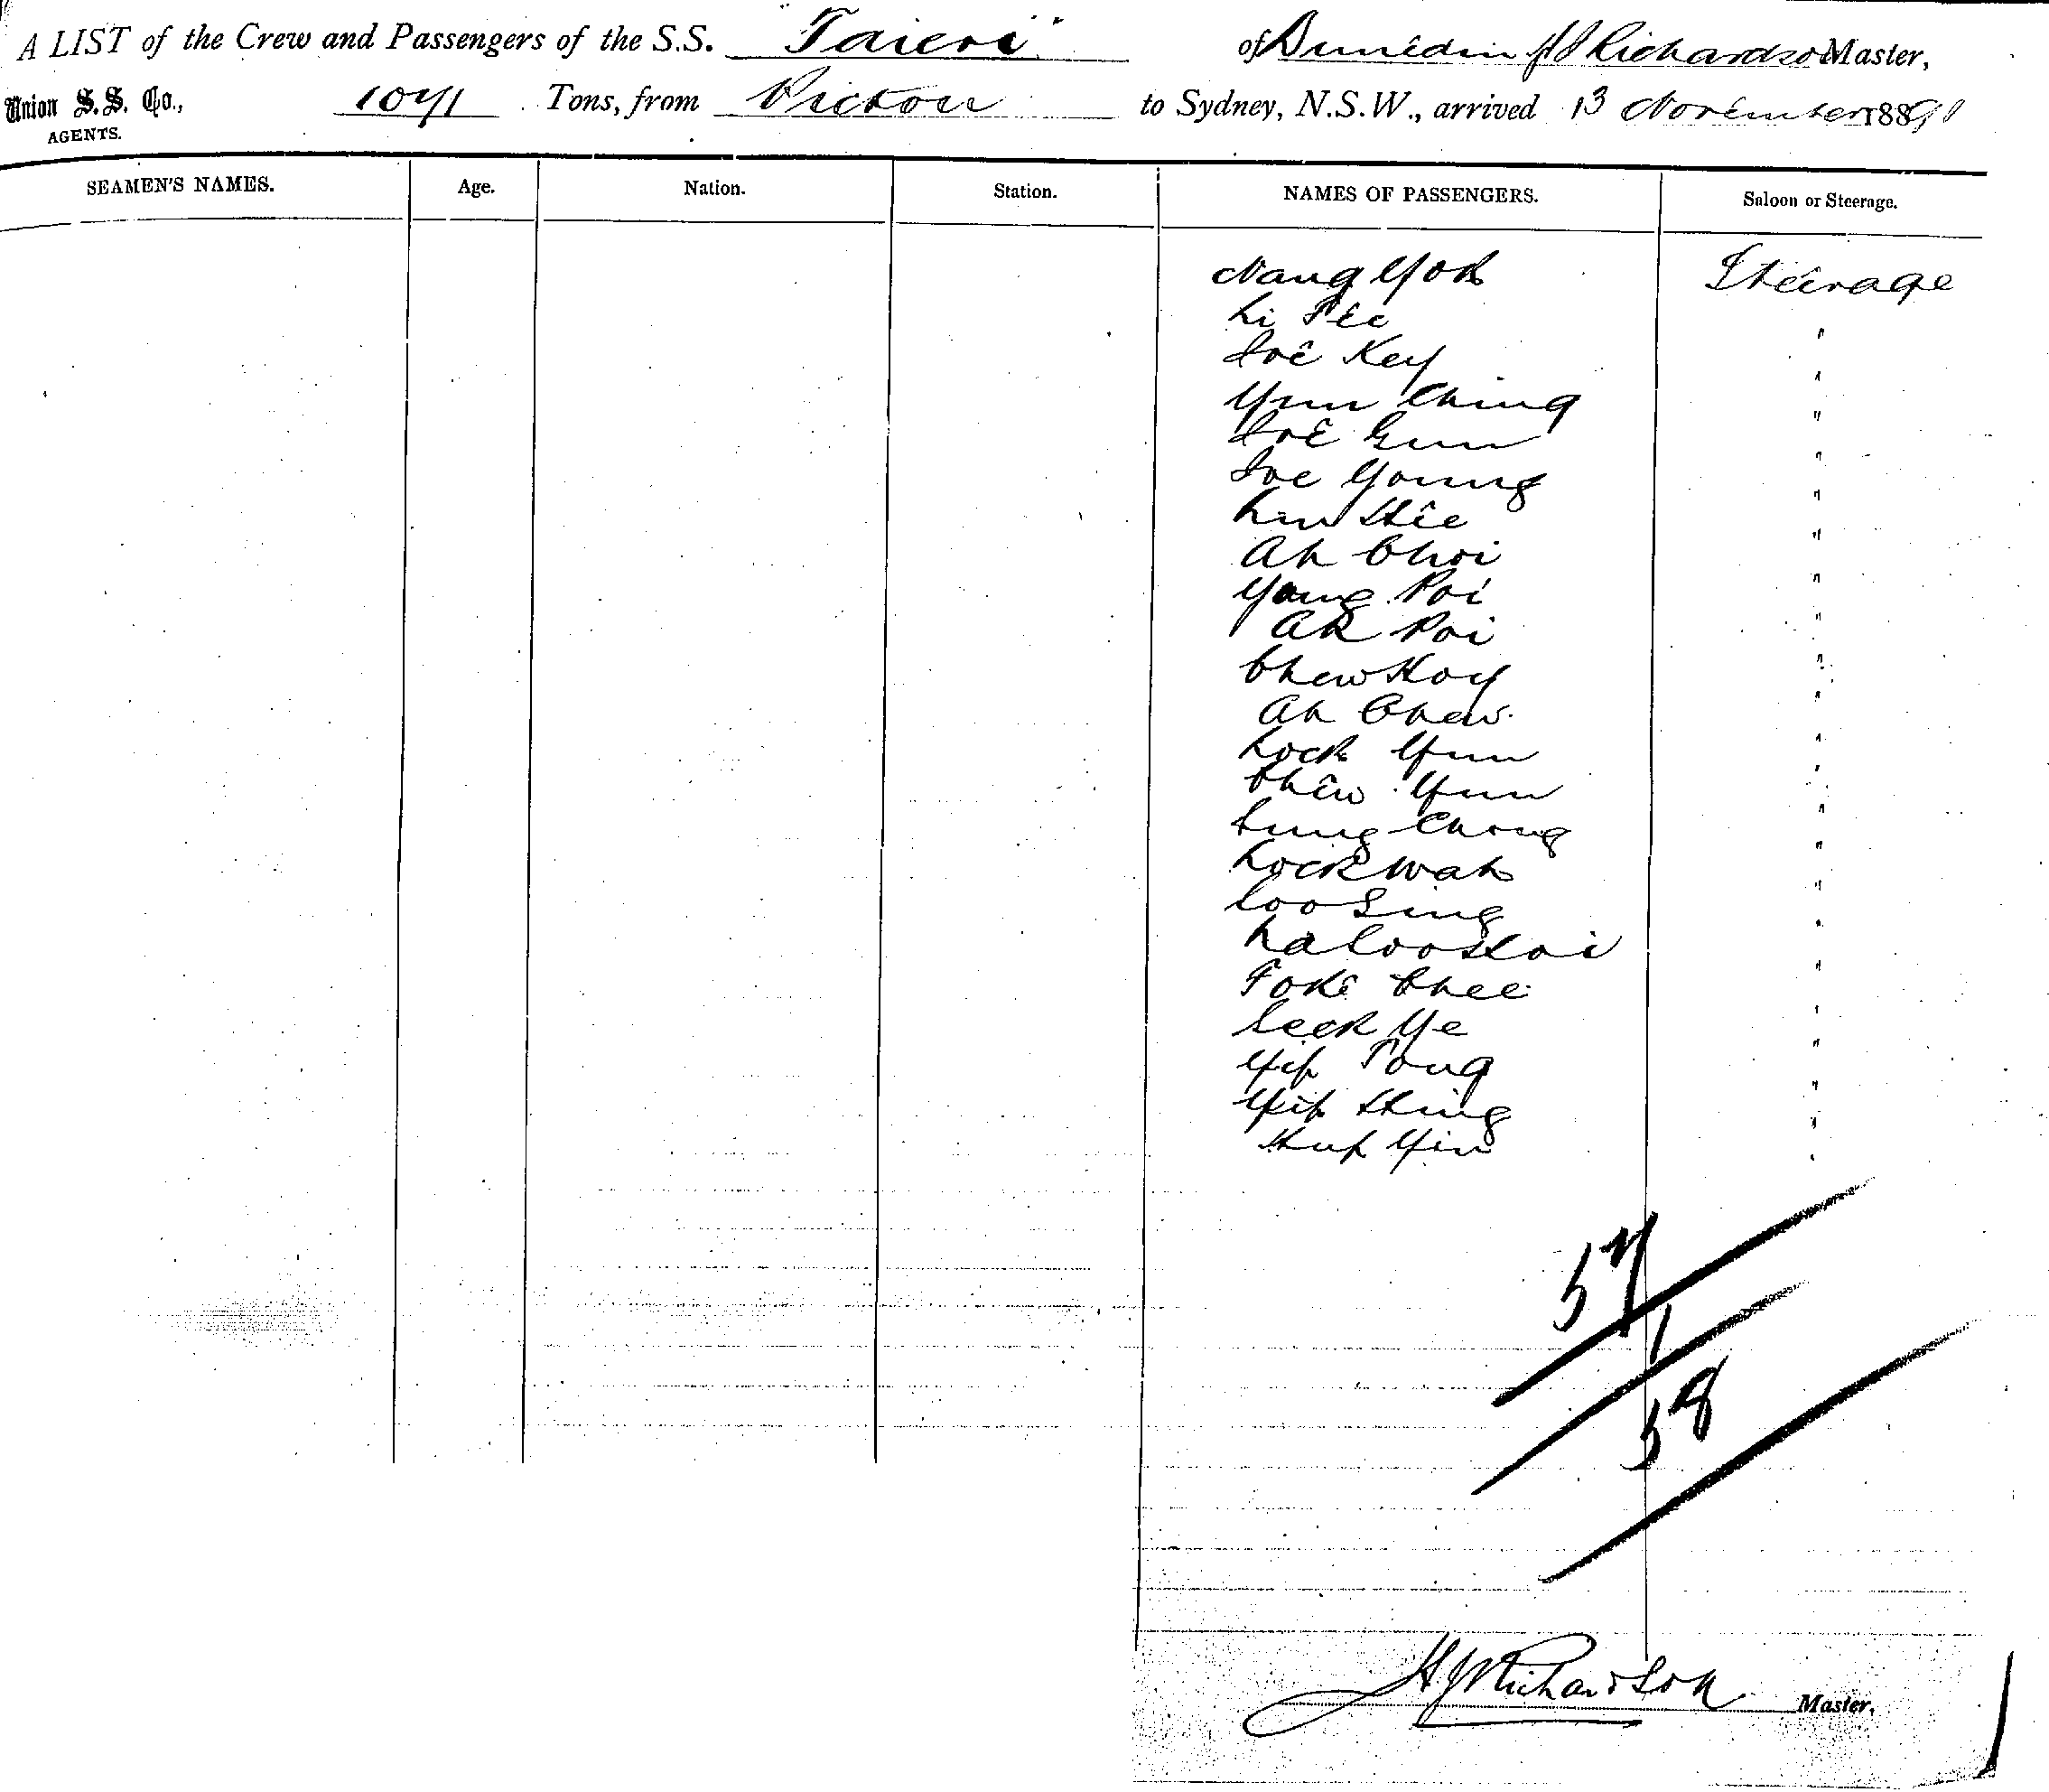 A LIST of the Crew and Passengers of the S.S. "Taieri" of Dunedin HJ Richardson Master,
Union S.S. Co., 1071 Tons, from Picton to Sydney, N.S.W., arrived 13 November 1889
AGENTS.
SEAMEN'S NAMES. Age. Nation. Station. NAMES OF PASSENGERS. Saloon or Steerage.
Nang Yok Steerage
Li Tee "
Soe Key "
Yun Ching "
Soe Gun "
Soe Young "
Lin Hee "
Ah Choi "
Yong Poi "
Ah Poi "
Chew Hoy "
Ah Chew "
Lock Yun "
Chew Yun "
Lung Chong "
Lock Wah "
Coo Sing "
"
Foke Chee "
Leek Ye "
Yip Tong "
Yip Shing "
Hup Yin "
57
1
58
HJ Richardson Master.